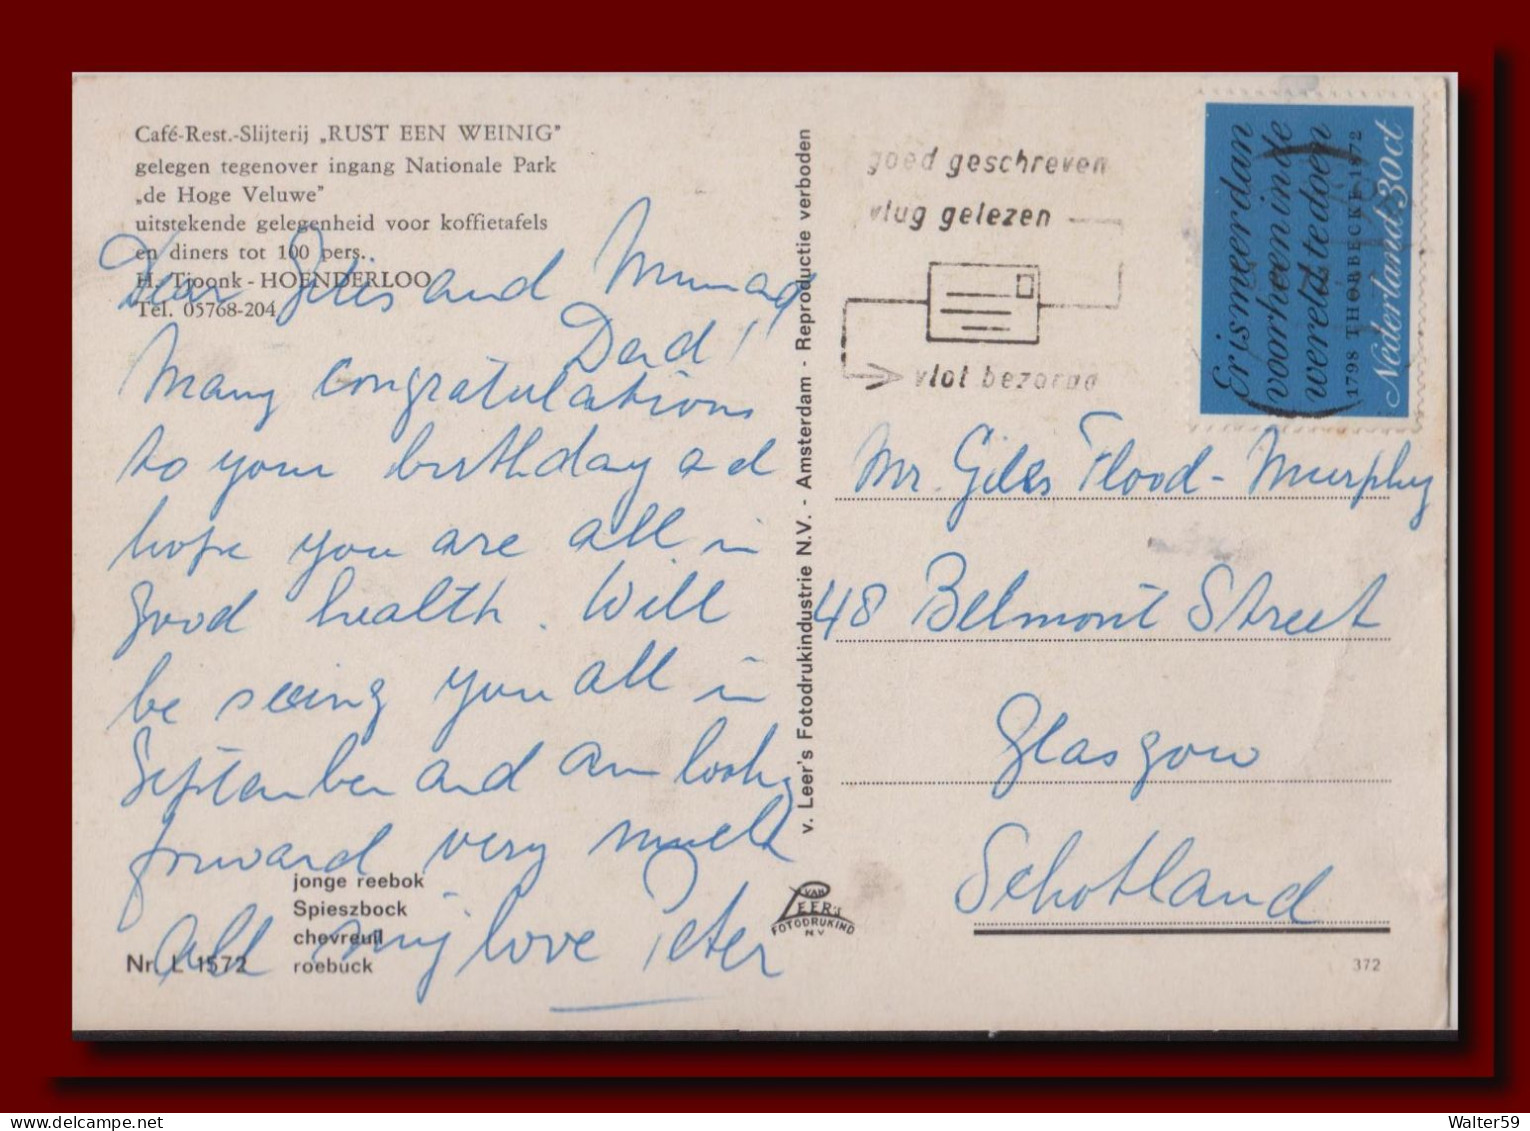 Café-Rest.-Slijterij „RUST EEN WEINIG"
gelegen tegenover ingang Nationale Park
„de Hoge Veluwe"
uitstekende gelegenheid voor koffietafels
en diners tot 100 pers..
H. Tjoonk - HOENDERLOO
Tel. 05768-204
Dear Giles and Mum and
Dad!!
Many congratulations
to your birthday and
hope you are all in
good health. Will
be seeing you all in
September and am looking
forward very much
All my love Peter
jonge reebok
Spieszbock
chevreuil
roebuck
Nr. L 1572
v. Leer's Fotodrukindustrie N.V. - Amsterdam - Reproductie verboden
VAN
LEER'S
FOTODRUKIND
N.V
goed geschreven
vlug gelezen
vlot bezorgd
Er is meer dan
voorheen in de
wereld te doen
1798 THORBECKE 1872
Nederland 30 ct
Mr. Giles Flood-Murphy
48 Belmont Street
Glasgow
Schotland
372
Walter59